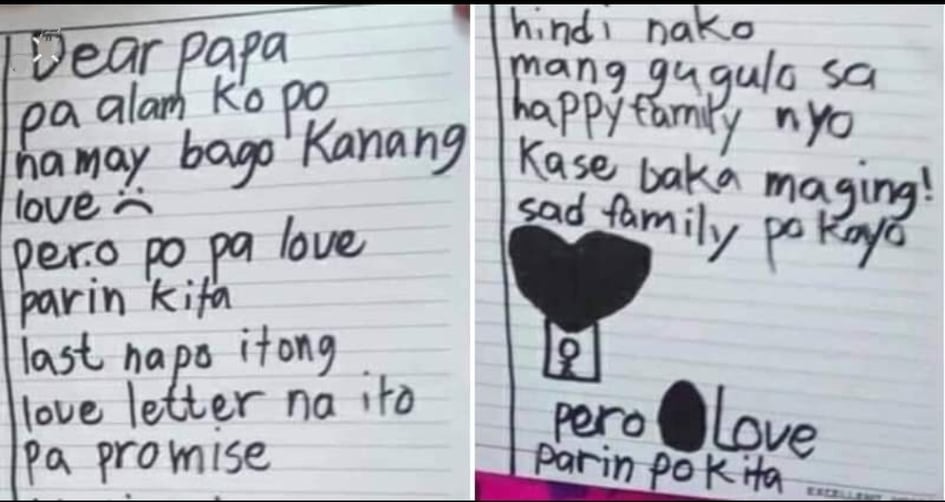 Dear papa
pa alam ko po
na may bago kanang
love
pero po pa love
parin kita
last napo itong
love letter na ito
pa promise
hindi nako
mang gugulo sa
happy family nyo
kase baka maging!
sad family po kayo
pero love
parin po kita
EXCELLENT